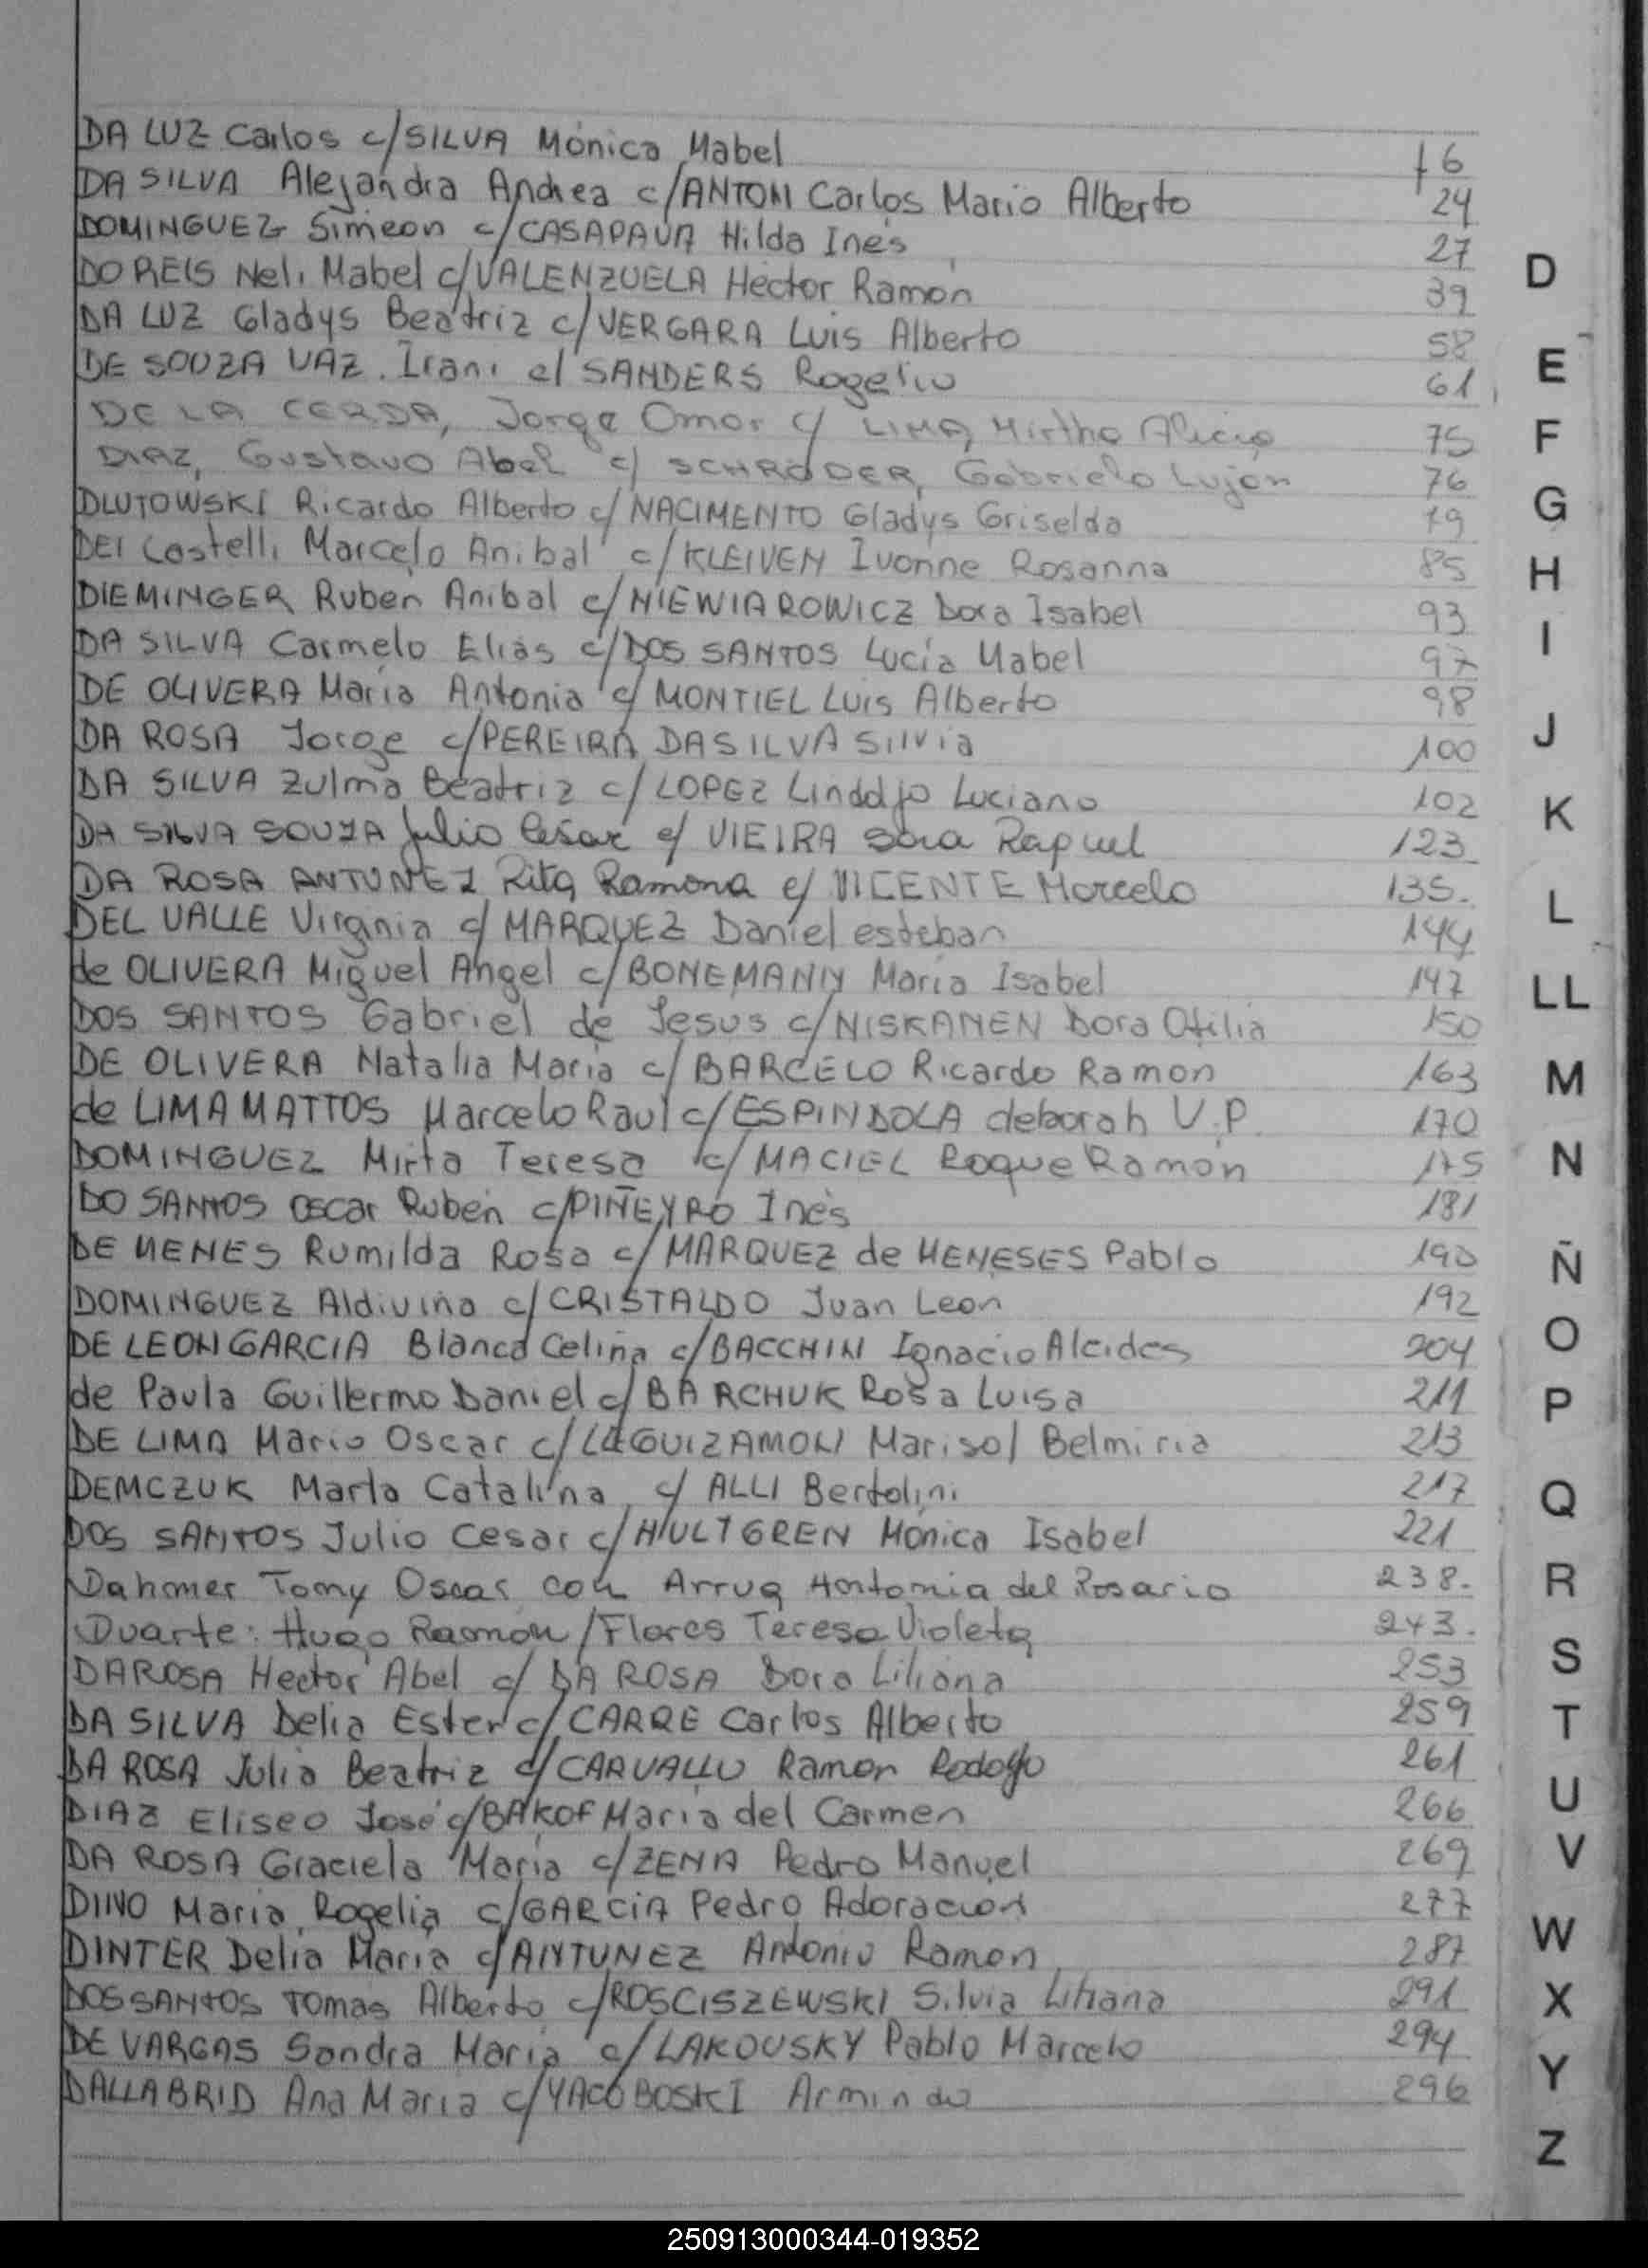 DA LUZ Carlos c/SILVA Mónica Mabel 6
DA SILVA Alejandra Andrea c/ANTON Carlos Mario Alberto 24
DOMINGUEZ Simeon c/CASAPAVA Hilda Inés 27
DO REIS Neli Mabel c/VALENZUELA Héctor Ramón 39
DA LUZ Gladys Beatriz c/VERGARA Luis Alberto 58
DE SOUZA VAZ. Irani c/SANDERS Rogelio 61
DE LA CERDA, Jorge Omar c/ LIMA, Mirtha Alicia 75
DIAZ, Gustavo Abel c/ SCHRODER, Gabriela Luján 76
DLUTOWSKI Ricardo Alberto c/NACIMENTO Gladys Griselda 79
DEI Castelli Marcelo Anibal c/KLEIVEN Ivonne Rosanna 85
DIEMINGER Ruben Anibal c/NIEWIAROWICZ Dora Isabel 93
DA SILVA Carmelo Elias c/DOS SANTOS Lucía Mabel 97
DE OLIVERA María Antonia c/ MONTIEL Luis Alberto 98
DA ROSA Jorge c/PEREIRA DASILVA Silvia 100
DA SILVA Zulma Beatriz c/LOPEZ Luciano 102
DA SILVA SOUZA Julio Cesar c/ VIEIRA Sara Raquel 123
DA ROSA ANTUNEZ Rita Ramona c/ VICENTE Marcelo 135.
DEL VALLE Virginia c/ MARQUEZ Daniel esteban 144
de OLIVERA Miguel Angel c/BONEMANN María Isabel 147
DOS SANTOS Gabriel de Jesus c/NISKANEN Dora Otilia 150
DE OLIVERA Natalia María c/BARCELO Ricardo Ramon 163
de LIMA MATTOS Marcelo Raul c/ESPINDOLA deborah V.P. 170
DOMINGUEZ Mirta Teresa c/MACIEL Roque Ramón 175
DO SANTOS Oscar Rubén c/PIÑEYRO Inés 181
DE MENES Rumilda Rosa c/MARQUEZ de MENESES Pablo 190
DOMINGUEZ Aldivina c/CRISTALDO Juan Leon 192
DE LEON GARCIA Blanca Celina c/BACCHIN Ignacio Alcides 204
de Paula Guillermo Daniel c/BARCHUK Rosa Luisa 211
DE LIMA Mario Oscar c/LEGUIZAMON Marisol Belmiria 213
DEMCZUK Marta Catalina c/ ALLI Bertolini 217
DOS SANTOS Julio Cesar c/HULTGREN Mónica Isabel 221
Dahmer Tomy Oscar con Arrua del Rosario 238.
Duarte: Hugo Ramón/Flores Teresa Violeta 243.
DAROSA Hector Abel c/ DA ROSA Dora Liliana 253
DA SILVA Delia Ester c/CARRE Carlos Alberto 259
DA ROSA Julia Beatriz c/CARVALLO Ramon Rodolfo 261
DIAZ Eliseo José c/BAKOF María del Carmen 266
DA ROSA Graciela María c/ZENA Pedro Manuel 269
DINO María Rogelia c/GARCIA Pedro Adoracion 277
DINTER Delia María c/ANTUNEZ Antonio Ramon 287
DOS SANTOS Tomas Alberto c/ROSCISZEWSKI Silvia Liliana 291
DE VARGAS Sandra María c/LAKOUSKY Pablo Marcelo 294
DALLABRID Ana María c/YACOBOSKI Armindo 296
D
E
F
G
H
I
J
K
L
LL
M
N
Ñ
O
P
Q
R
S
T
U
V
W
X
Y
Z
250913000344-019352